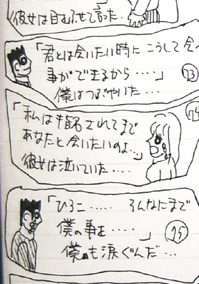 彼女は目をふせて言った‥
「君とは会いたい時にこうして会う
事ができるから‥‥」
僕はつぶやいた‥
73
「私は指名されてまで
あなたと会いたいのよ‥」
彼女は泣いていた‥‥
74
「ひろこ‥‥‥そんなにまで
僕の事を‥‥」
75
僕も涙ぐんだ‥